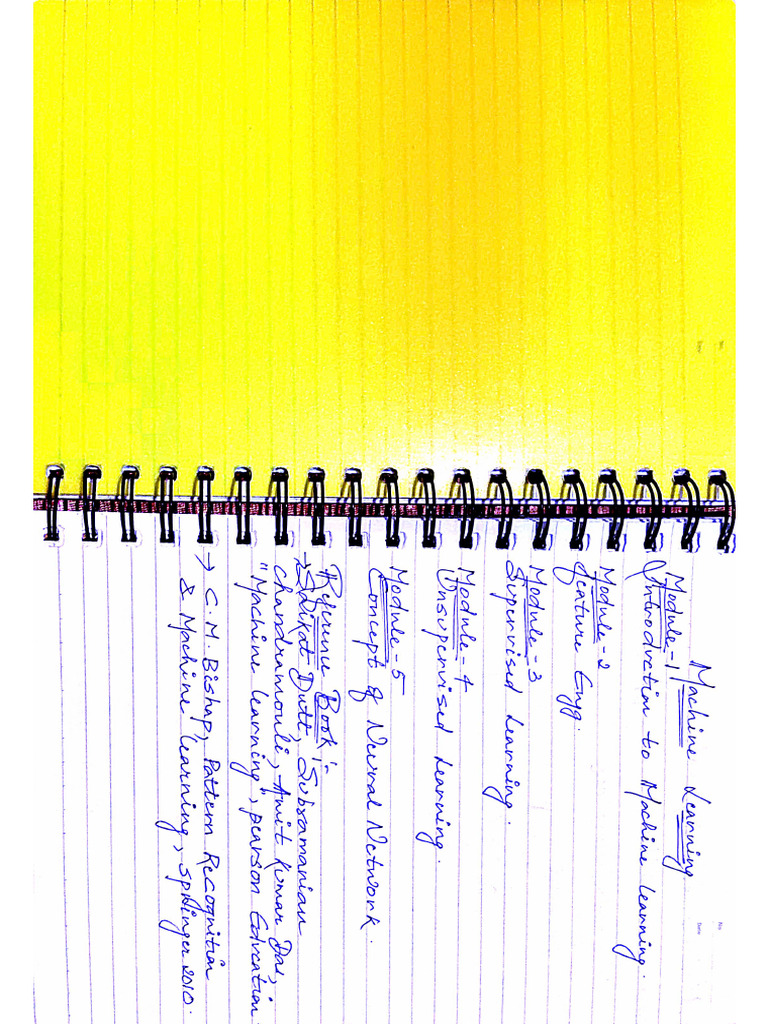 Machine Learning
Module-1
Introduction to Machine learning.
Module-2
Feature Engg.
Module-3
Supervised Learning.
Module-4
Unsupervised Learning.
Module-5
Concept of Neural Network.
Reference Book :-
→ Saikat Dutt, Subramanian
chandramouli, Amit Kumar Das,
"Machine learning", pearson Education
→ C.M. Bishop, Pattern Recognition
& Machine learning, springer 2010.